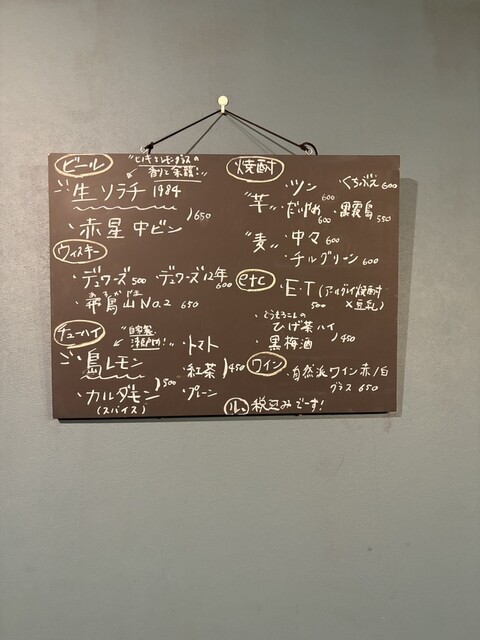 ビール
"ヒノキとレモングラスの
香りと余韻!"
生 ソラチ 1984
・赤星 中ビン
650
ウィスキー
・デュワーズ 500 ・デュワーズ12年 600
・飛鳥山 No.2 650
あすかやま
チューハイ
"自家製
瀬戸内!"
島レモン
・カルダモン
(スパイス)
500
・トマト
・紅茶
・プレーン
450
焼酎
"芋" ・ツン ・くちぶえ 600
・だいやめ 600 ・黒霧島 550
"麦" ・中々 600
・チルグリーン 600
etc
・E.T (アールグレイ焼酎
500 ×豆乳)
・とうもろこしの
ひげ茶ハイ
・黒梅酒
450
ワイン
・自然派ワイン 赤/白
グラス 650
税込みでーす!